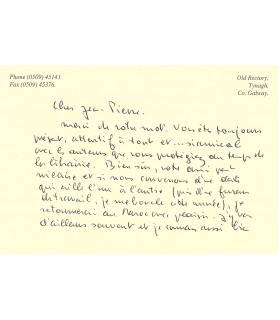 Phone (0509) 45143.
Fax (0509) 45376.
Old Rectory,
Tynagh,
Co. Galway.
Cher Jean-Pierre.
merci de votre mot. Vous êtes toujours
présent, attentif à tout et... si amical
avec les auteurs que vous protégiez au temps de
la librairie. Bien sûr, votre ami peut
m'écrire et si nous convenons d'une date
qui aille l'un à l'autre (pris d'une fureur
de travail, je me boucle cette année), je
retournerai au Maroc avec plaisir. J'y vais
d'ailleurs souvent et je connais aussi